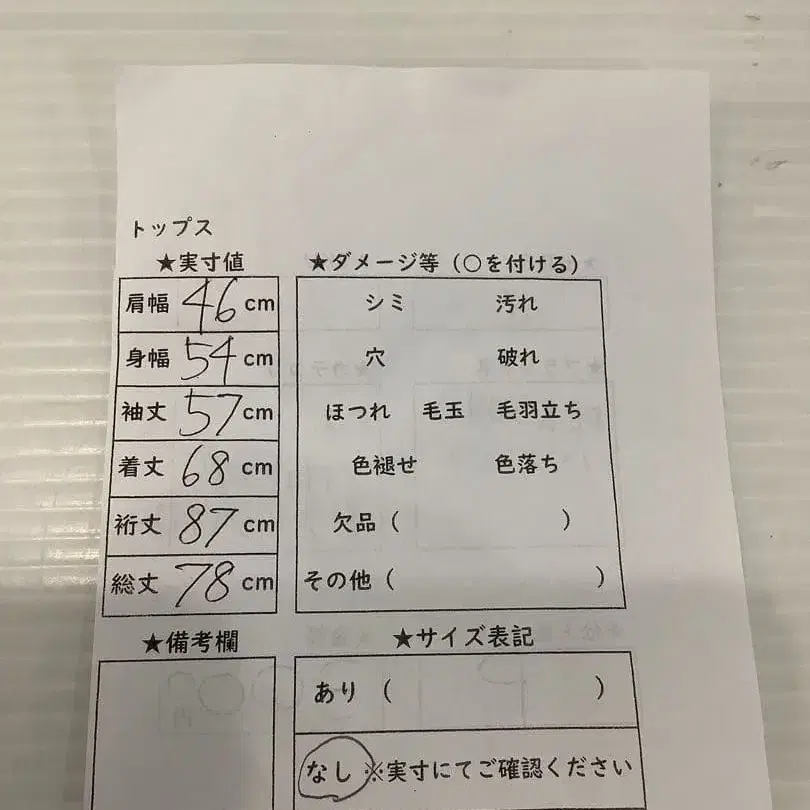 トップス
★実寸値
肩幅 46 cm
身幅 54 cm
袖丈 57 cm
着丈 68 cm
裄丈 87 cm
総丈 78 cm
★ダメージ等（○を付ける）
シミ 汚れ
穴 破れ
ほつれ 毛玉 毛羽立ち
色褪せ 色落ち
欠品（ ）
その他（ ）
★備考欄
★サイズ表記
あり（ ）
なし ※実寸にてご確認ください